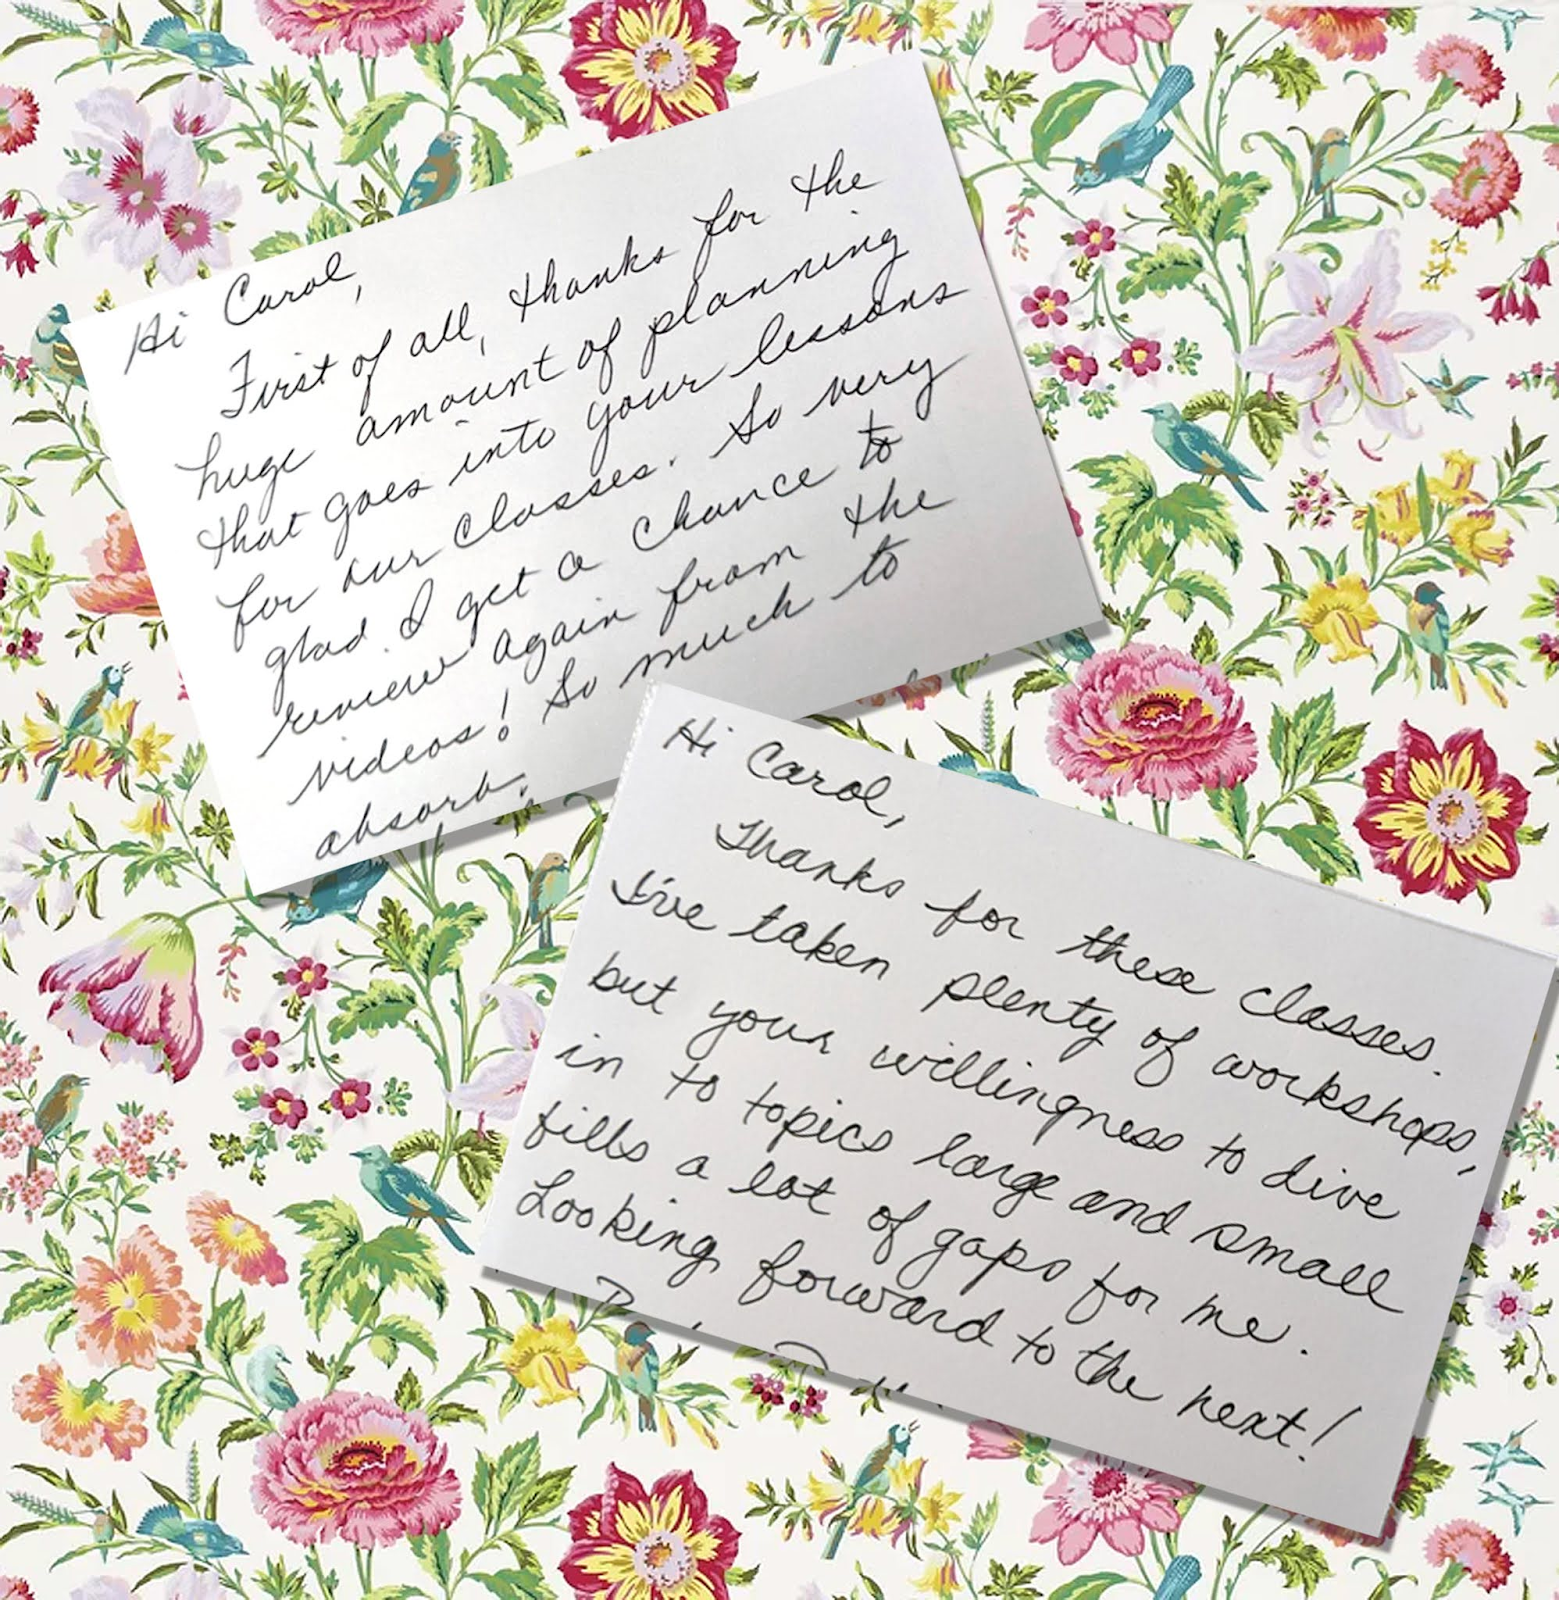 Hi Carol,
First of all, thanks for the
huge amount of planning
that goes into your lessons
for our classes. So very
glad I get a chance to
review again from the
videos! So much to
absorb.
Hi Carol,
Thanks for these classes.
I've taken plenty of workshops,
but your willingness to dive
in to topics large and small
fills a lot of gaps for me.
Looking forward to the next!